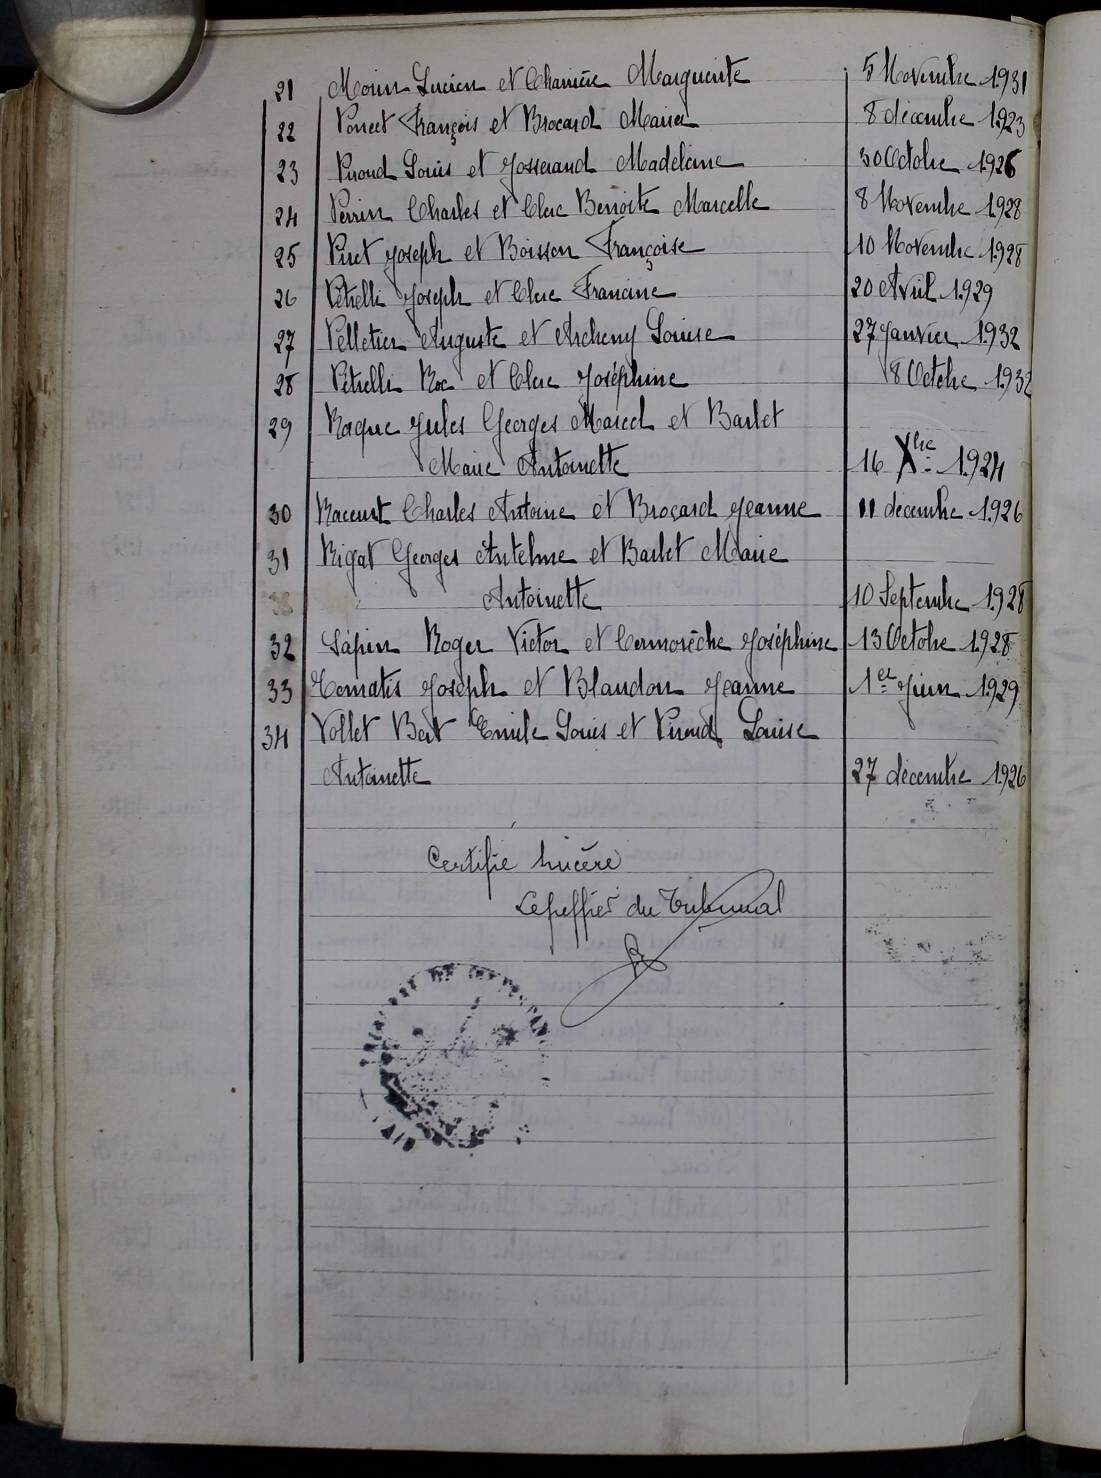 21 Morin Lucien et Charrière Marguerite 5 Novembre 1931
22 Poncet François et Brocard Maria 8 décembre 1923
23 Piroud Louis et Josserand Madeleine 30 Octobre 1926
24 Perrin Charles et Clerc Benoite Marcelle 8 Novembre 1928
25 Piret Joseph et Boisson Françoise 10 Novembre 1928
26 Pétrelli Joseph et Clerc Francine 20 Avril 1929
27 Pelletier Auguste et Ascheny Louise 27 Janvier 1932
28 Pétrelli Roc et Clerc Joséphine 8 Octobre 1932
29 Raque Jules Georges Marcel et Barlet
Marie Antoinette 16 Xbre 1924
30 Raccurt Charles Antoine et Brocard Jeanne 11 décembre 1926
31 Rigat Georges Antelme et Barlet Marie
Antoinette 10 Septembre 1928
32 Sapin Roger Victor et Cormorèche Joséphine 13 Octobre 1928
33 Tomatis Joseph et Blandon Jeanne 1er Juin 1929
34 Vollet Bert Emile Louis et Piroud Louise
Antoinette 27 décembre 1926
Certifié sincère
Le greffier du Tribunal